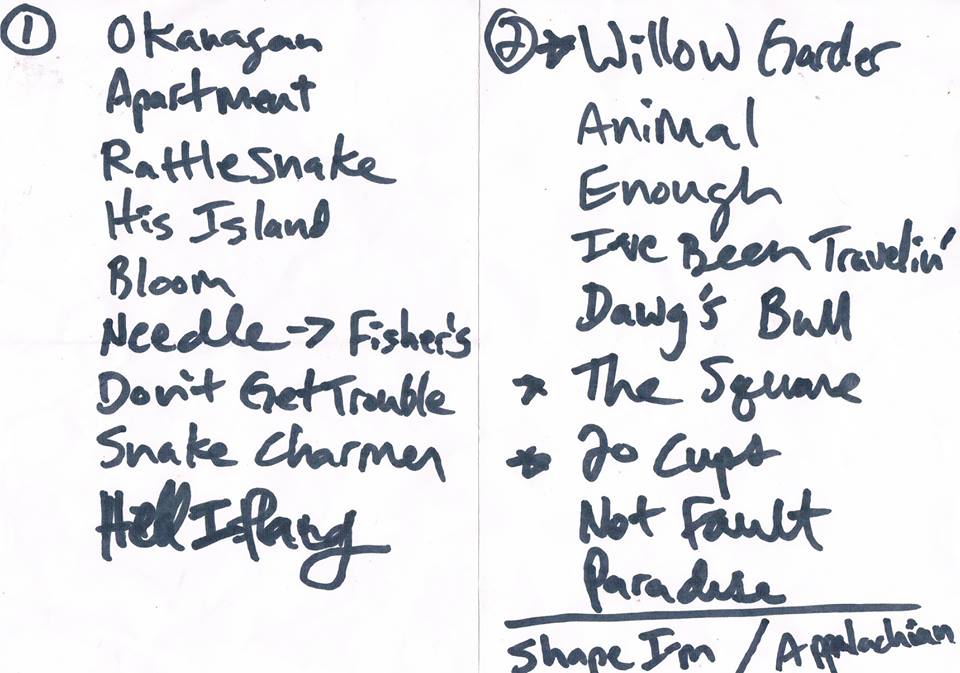 ① Okanagan
Apartment
Rattlesnake
His Island
Bloom
Needle -> Fisher's
Don't Get Trouble
Snake Charmer
② Willow Garden
Animal
Enough
I've Been Travelin'
Dawg's Bull
→ The Square
20 Cups
Not Fault
Paradise
Shape Im / Appalachian